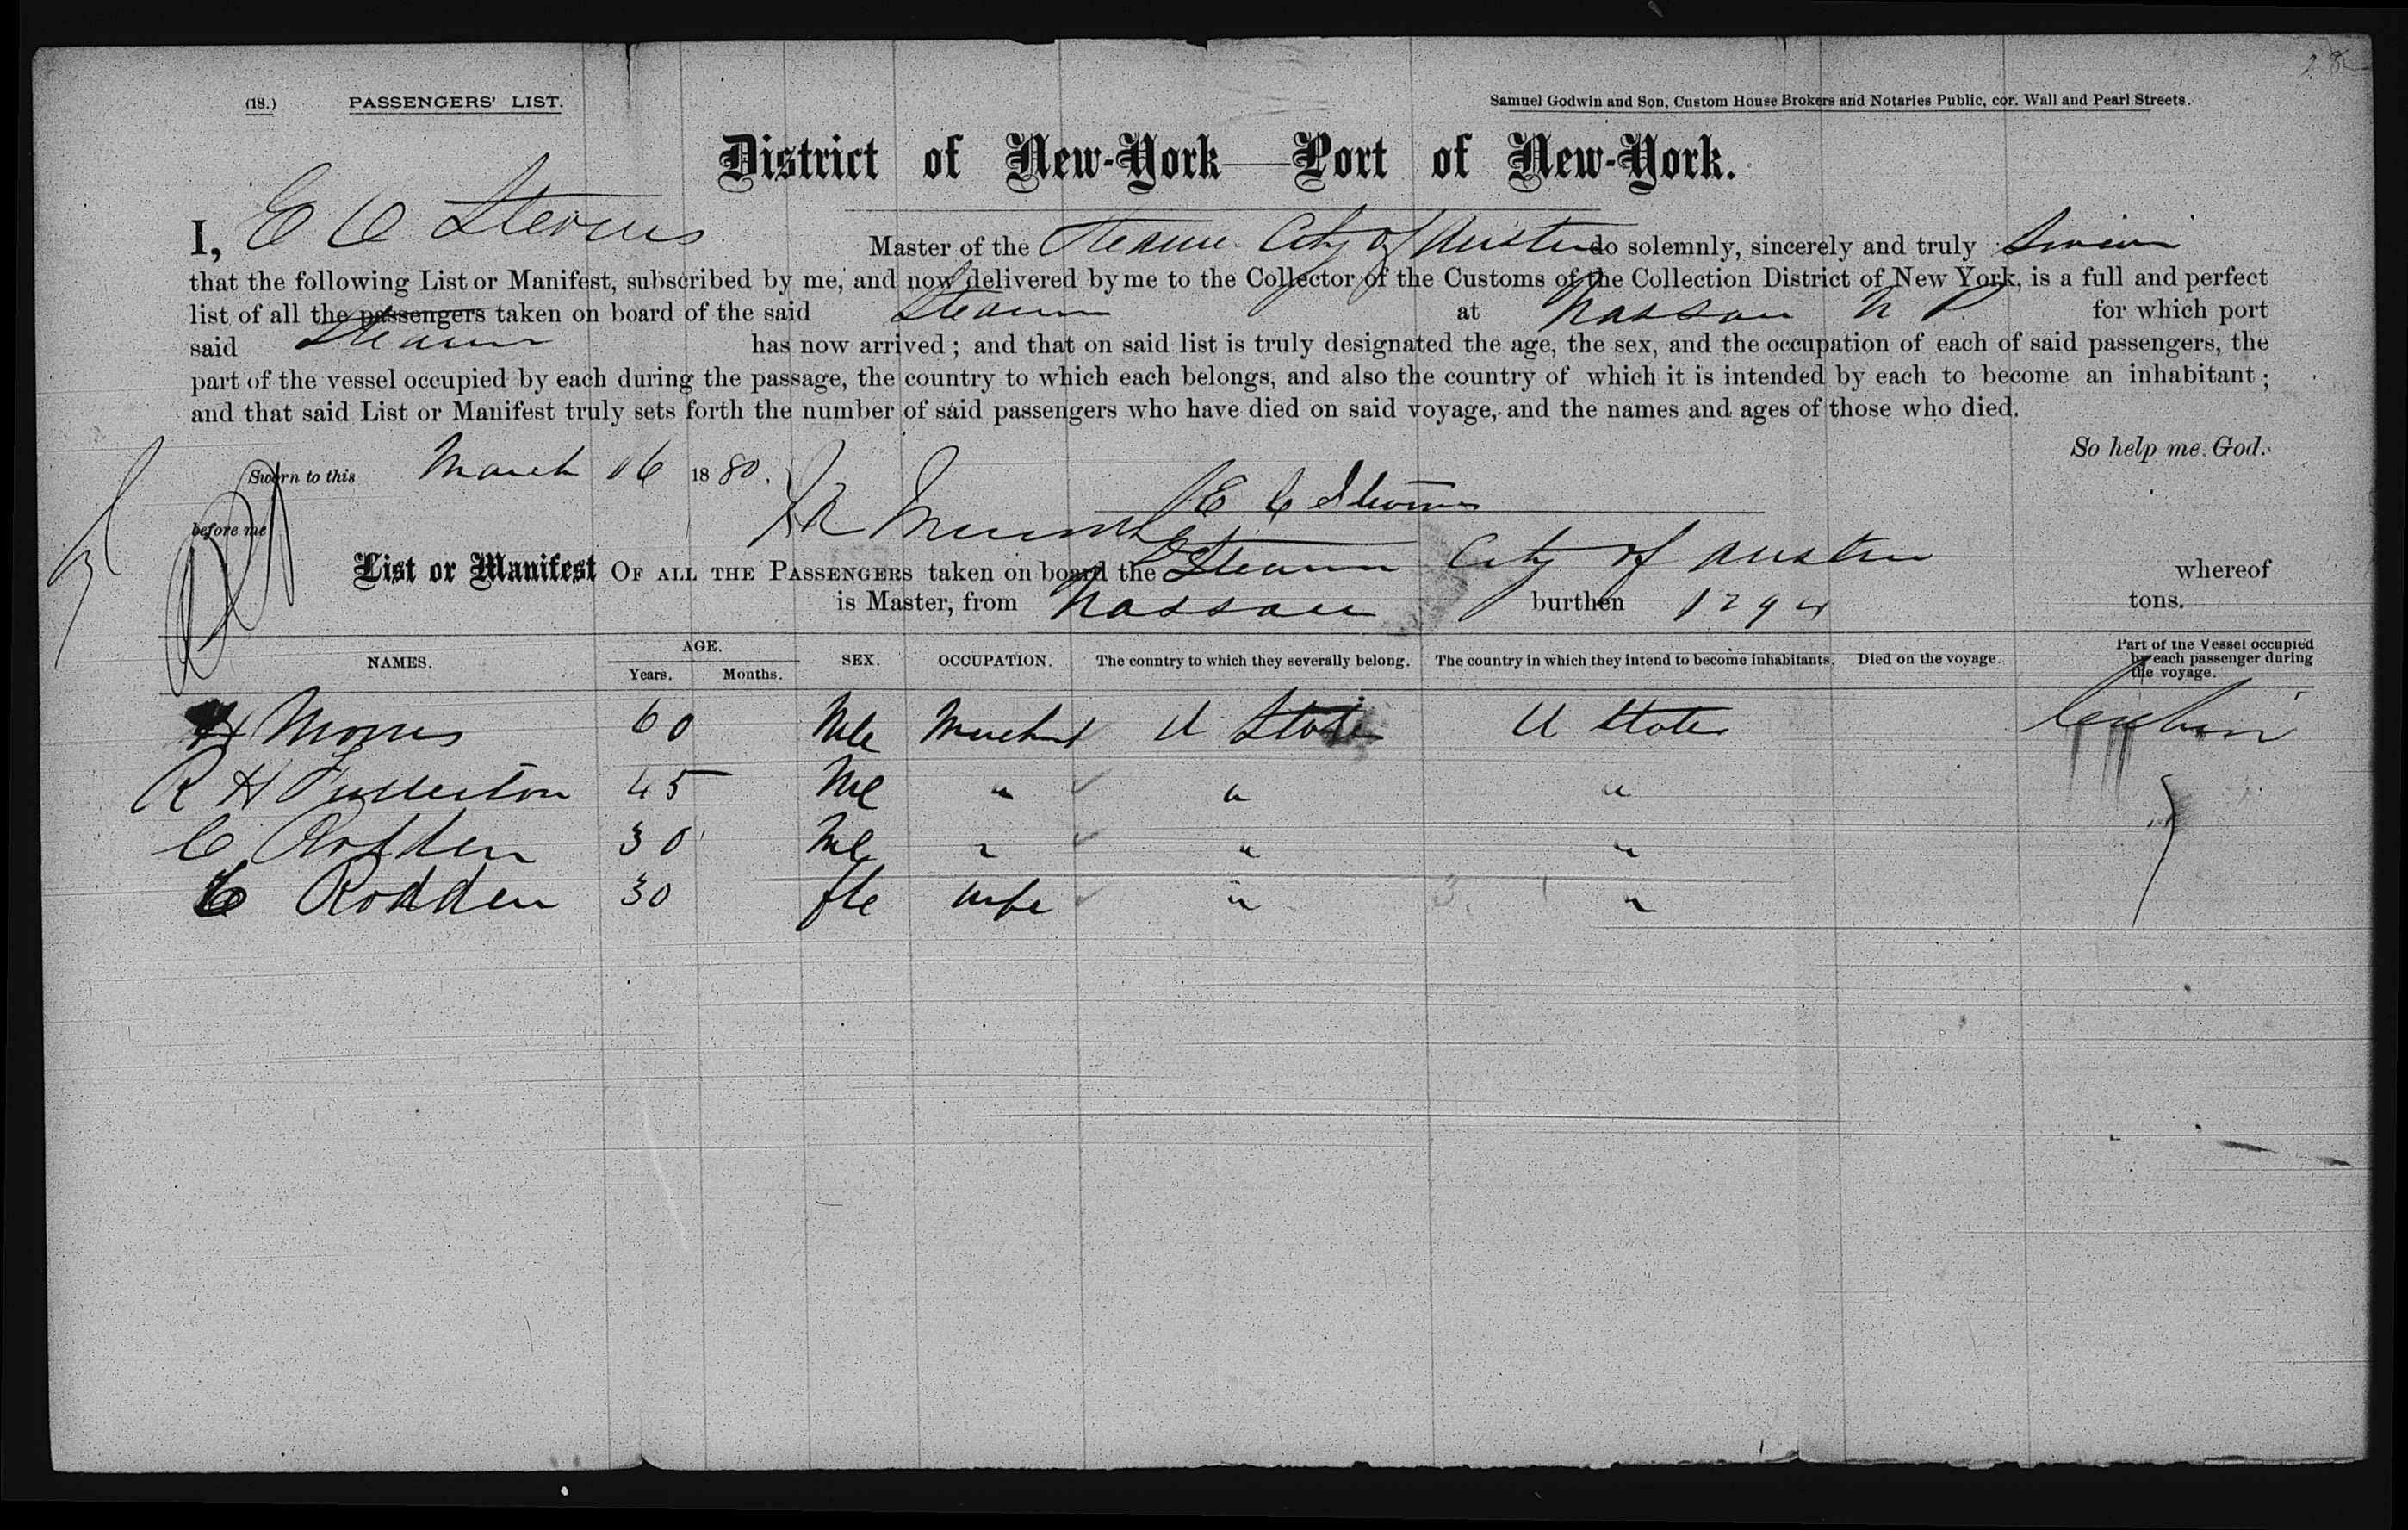 28
(18.) PASSENGERS' LIST. Samuel Godwin and Son, Custom House Brokers and Notaries Public, cor. Wall and Pearl Streets.
District of New-York—Port of New-York.
I, E C Stevens Master of the Steamer City of Austin do solemnly, sincerely and truly Swear
that the following List or Manifest, subscribed by me, and now delivered by me to the Collector of the Customs of the Collection District of New York, is a full and perfect
list of all the passengers taken on board of the said Steamer at Nassau N P for which port
said Steamer has now arrived; and that on said list is truly designated the age, the sex, and the occupation of each of said passengers, the
part of the vessel occupied by each during the passage, the country to which each belongs, and also the country of which it is intended by each to become an inhabitant;
and that said List or Manifest truly sets forth the number of said passengers who have died on said voyage, and the names and ages of those who died.
So help me God.
Sworn to this March 16 1880.
E C Stevens
before me
List or Manifest OF ALL THE PASSENGERS taken on board the Steamer City of Austin whereof
is Master, from Nassau burthen 1294 tons.
NAMES. AGE. Years. Months. SEX. OCCUPATION. The country to which they severally belong. The country in which they intend to become inhabitants. Died on the voyage. Part of the Vessel occupied by each passenger during the voyage.
H Morris 60 Mle Merchnt U States U States Cabin
R H Fullerton 45 Ml " " "
C Rodden 30 Ml " " "
C Rodden 30 fle Wife " "